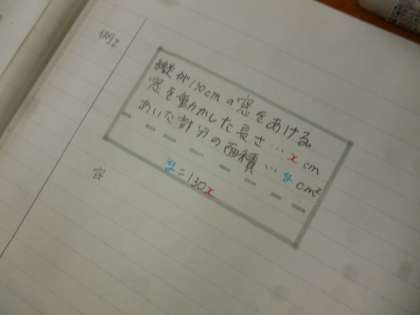 例2
縦が130cmの窓をあける。
窓を動かした長さ…x cm
あいた部分の面積…y cm²
y=130x